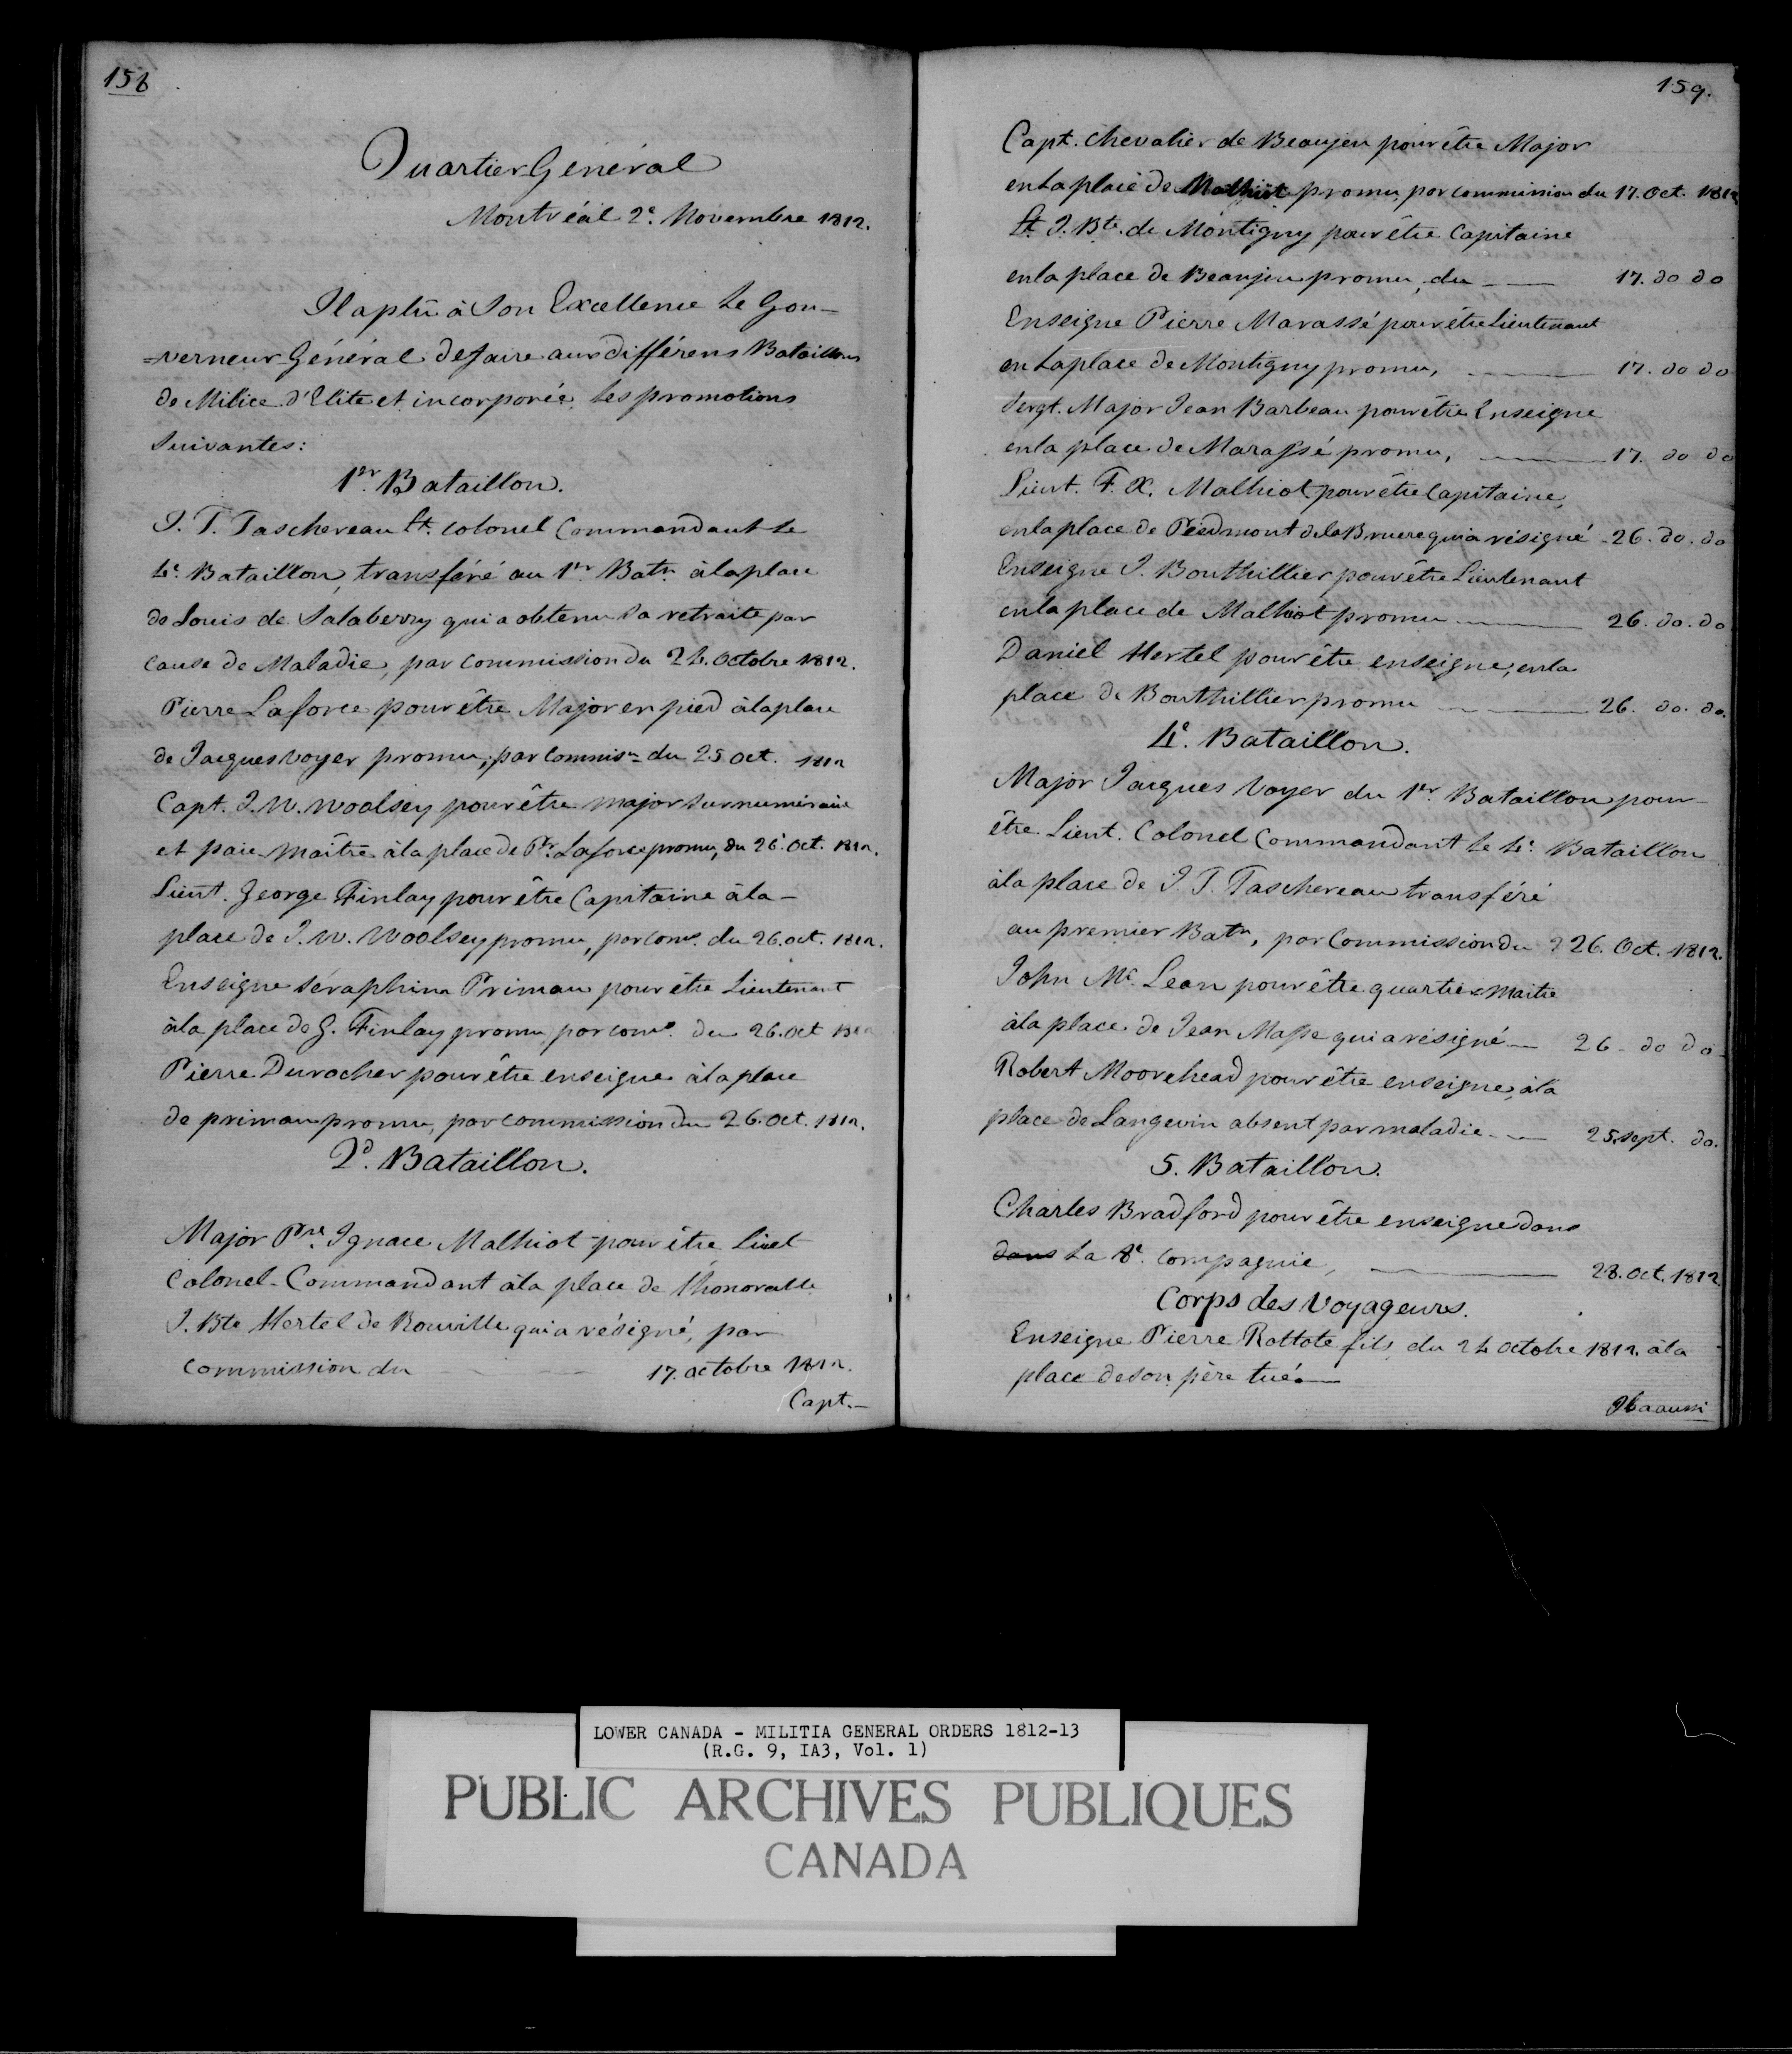 158
Quartier Général
Montréal 2e. Novembre 1812.
Il a plû à Son Excellence le Gou-
=verneur Général de faire aux différens Bataillons
de Milice d'Elite et incorporée, les promotions
Suivantes:
1er. Bataillon.
J. T. Taschereau Lt. colonel Commandant le
4e. Bataillon, transféré au 1er Batn. à la place
de Louis de Salaberry qui a obtenu sa retraite par
cause de Maladie, par commission du 24. Octobre 1812.
Pierre Laforce pour être Major en pied à la place
de Jacques Voyer promu, par Commisn= du 25 Oct. 1812
Capt. J. W. Woolsey pour être major Surnuméraire
et paie-maître à la place de Pre. Laforce promu, du 26. Oct. 1812.
Lieut. George Finlay pour être Capitaine à la-
place de J. W. Woolsey promu, par comn. du 26. oct. 1812.
Enseigne Séraphin Primau pour être Lieutenant
à la place de G. Finlay promu, par comn. du 26. oct 1812
Pierre Durocher pour être enseigne à la place
de primau promu, par commission du 26. Oct. 1812.
2d. Bataillon.
Major Pre. Ignace Malhiot pour être Liuet
Colonel-Commandant à la place de l'honorable
J. Bte Hertel de Rouville qui a résigné, par
commission du 17. octobre 1812.
Capt.-
159.
Capt. Chevalier de Beaujeu pour être Major
en la place de Malhiot promu, par commission du 17. Oct. 1812
Lt. J. Bte. de Montigny pour être Capitaine
en la place de Beaujeu promu, du -- 17. do do
Enseigne Pierre Marassé pour être Lieutenant
en la place de Montigny promu, — 17. do do
Sergt. Major Jean Barbeau pour être Enseigne
en la place de Marassé promu, — 17. do do
Lieut. F. X. Malhiot pour être Capitaine,
en la place de Piedmont de la Bruere qui a résigné - 26. do. do
Enseigne J. Bouthillier pour être Lieutenant
en la place de Malhiot promu — 26. do. do
Daniel Hertel pour être enseigne, en la
place de Bouthillier promu — 26. do. do.
4e. Bataillon.
Major Jacques Voyer du 1er. Bataillon pour-
être Lieut. Colonel Commandant le 4e. Bataillon
à la place de J. T. Taschereau transféré
au premier Batn, par Commission du 26. Oct. 1812.
John Mc. Lean pour être quartier Maitre
à la place de Jean Masse qui a résigné — 26 - do do-
Robert Moorehead pour être enseigne, à la
place de Langevin absent par maladie — 25. sept. do.
5. Bataillon.
Charles Bradford pour être enseigne dans
dans la 8e. compagnie, — 28. Oct. 1812
Corps des Voyageurs.
Enseigne Pierre Rottote fils, du 24 octobre 1812. à la
place de son père tué. —
Il a aussi
LOWER CANADA - MILITIA GENERAL ORDERS 1812-13
(R.G. 9, IA3, Vol. 1)
PUBLIC ARCHIVES PUBLIQUES
CANADA